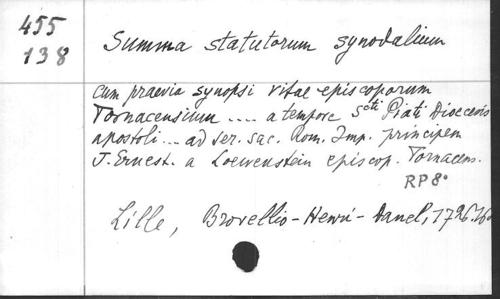 455
138
Summa statutorum synodalium
cum praevia synopsi vitae episcoporum
Tornacensium .... a tempore Scti Piati Dioecesis
apostoli ... ad ser. sac. Rom. Imp. principem
J. Ernest. a Loewenstein episcop. Tornacens.
RP 8°
Lille, Brovellio - Henri - Danel, 1726.